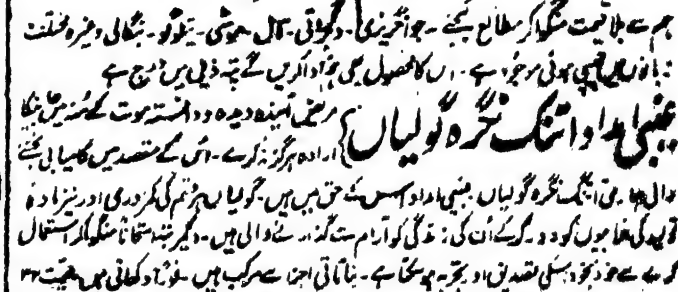 ہم سے بلا قیمت منگوا کر مطالع کیجئے ۔ جو انگریزی ۔ گجراتی ۔ تامل ۔ مرہٹی ۔ تیلوگو ۔ بنگالی وغیرہ مختلف
زبانوں میں چھپی ہوئی موجود ہے ۔ اس کا محصول بھی ہم ادا کریں گے پتہ ذیل میں درج ہے
غیبی امداد آتنک نگرہ گولیاں
مریض آئیندہ دیدہ و دانستہ موت کے منہ میں
ارادہ ہرگز نہ کرے ۔ اس کے مقصد میں کامیابی
آتنک نگرہ گولیاں غیبی امداد اس کے حق میں ہیں ۔ گولیاں ہر قسم کی کمزوری اور نیز مادہ
تولید کی خرابیوں کو دور کر کے ان کی زندگی کو آرام سے گذارنے والی ہیں ۔ منگوا کر استعمال
کرنے سے خود بخود اسکی تصدیق اور تجربہ ہو سکتا ہے ۔ نباتاتی اجزا سے مرکب ہیں ۔ قیمت